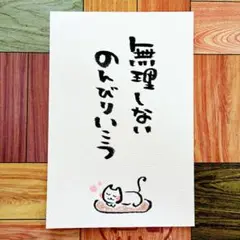 無理しない
のんびりいこう